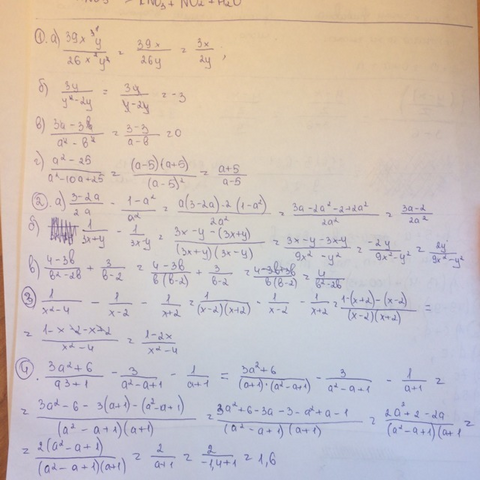 HNO3 → ZNO3 + NO2 + H2O
①. а) 39x³y / 26x²y² = 39x / 26y = 3x / 2y ;
б) 3y / y²-2y = 3y / y-2y = -3
в) 3a-3b / a²-b² = 3-3 / a-b = 0
г) a²-25 / a²-10a+25 = (a-5)(a+5) / (a-5)² = a+5 / a-5
②. а) 3-2a / 2a - 1-a² / a² = a(3-2a)-2(1-a²) / 2a² = 3a-2a²-2+2a² / 2a² = 3a-2 / 2a²
б) 1 / 3x+y - 1 / 3x-y = 3x-y-(3x+y) / (3x+y)(3x-y) = 3x-y-3x-y / 9x²-y² = -2y / 9x²-y² = 2y / 9x²-y²
в) 4-3b / b²-2b + 3 / b-2 = 4-3b / b(b-2) + 3 / b-2 = 4-3b+3b / b(b-2) = 4 / b²-2b
③ 1 / x²-4 - 1 / x-2 - 1 / x+2 = 1 / (x-2)(x+2) - 1 / x-2 - 1 / x+2 = 1-(x+2)-(x-2) / (x-2)(x+2) =
= 1-x-2-x+2 / x²-4 = 1-2x / x²-4
④. 3a²+6 / a3+1 - 3 / a²-a+1 - 1 / a+1 = 3a²+6 / (a+1)·(a²-a+1) - 3 / a²-a+1 - 1 / a+1 =
= 3a²-6-3(a+1)-(a²-a+1) / (a²-a+1)(a+1) = 3a²+6-3a-3-a²+a-1 / (a²-a+1)(a+1) = 2a²+2-2a / (a²-a+1)(a+1 =
= 2(a²-a+1) / (a²-a+1)(a+1) = 2 / a+1 = 2 / -1,4+1 = 1,6